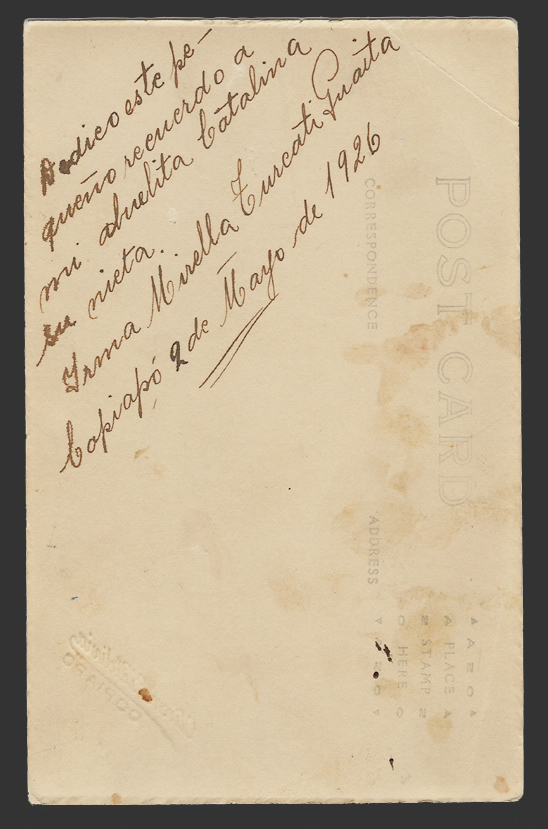 Dedico este pe-
queño recuerdo a
mi abuelita Catalina
su nieta.
Irma Mirella Turcati Guaita
Copiapó 2 de Mayo de 1926
POST CARD
CORRESPONDENCE
ADDRESS
PLACE
STAMP
HERE
COPIAPO